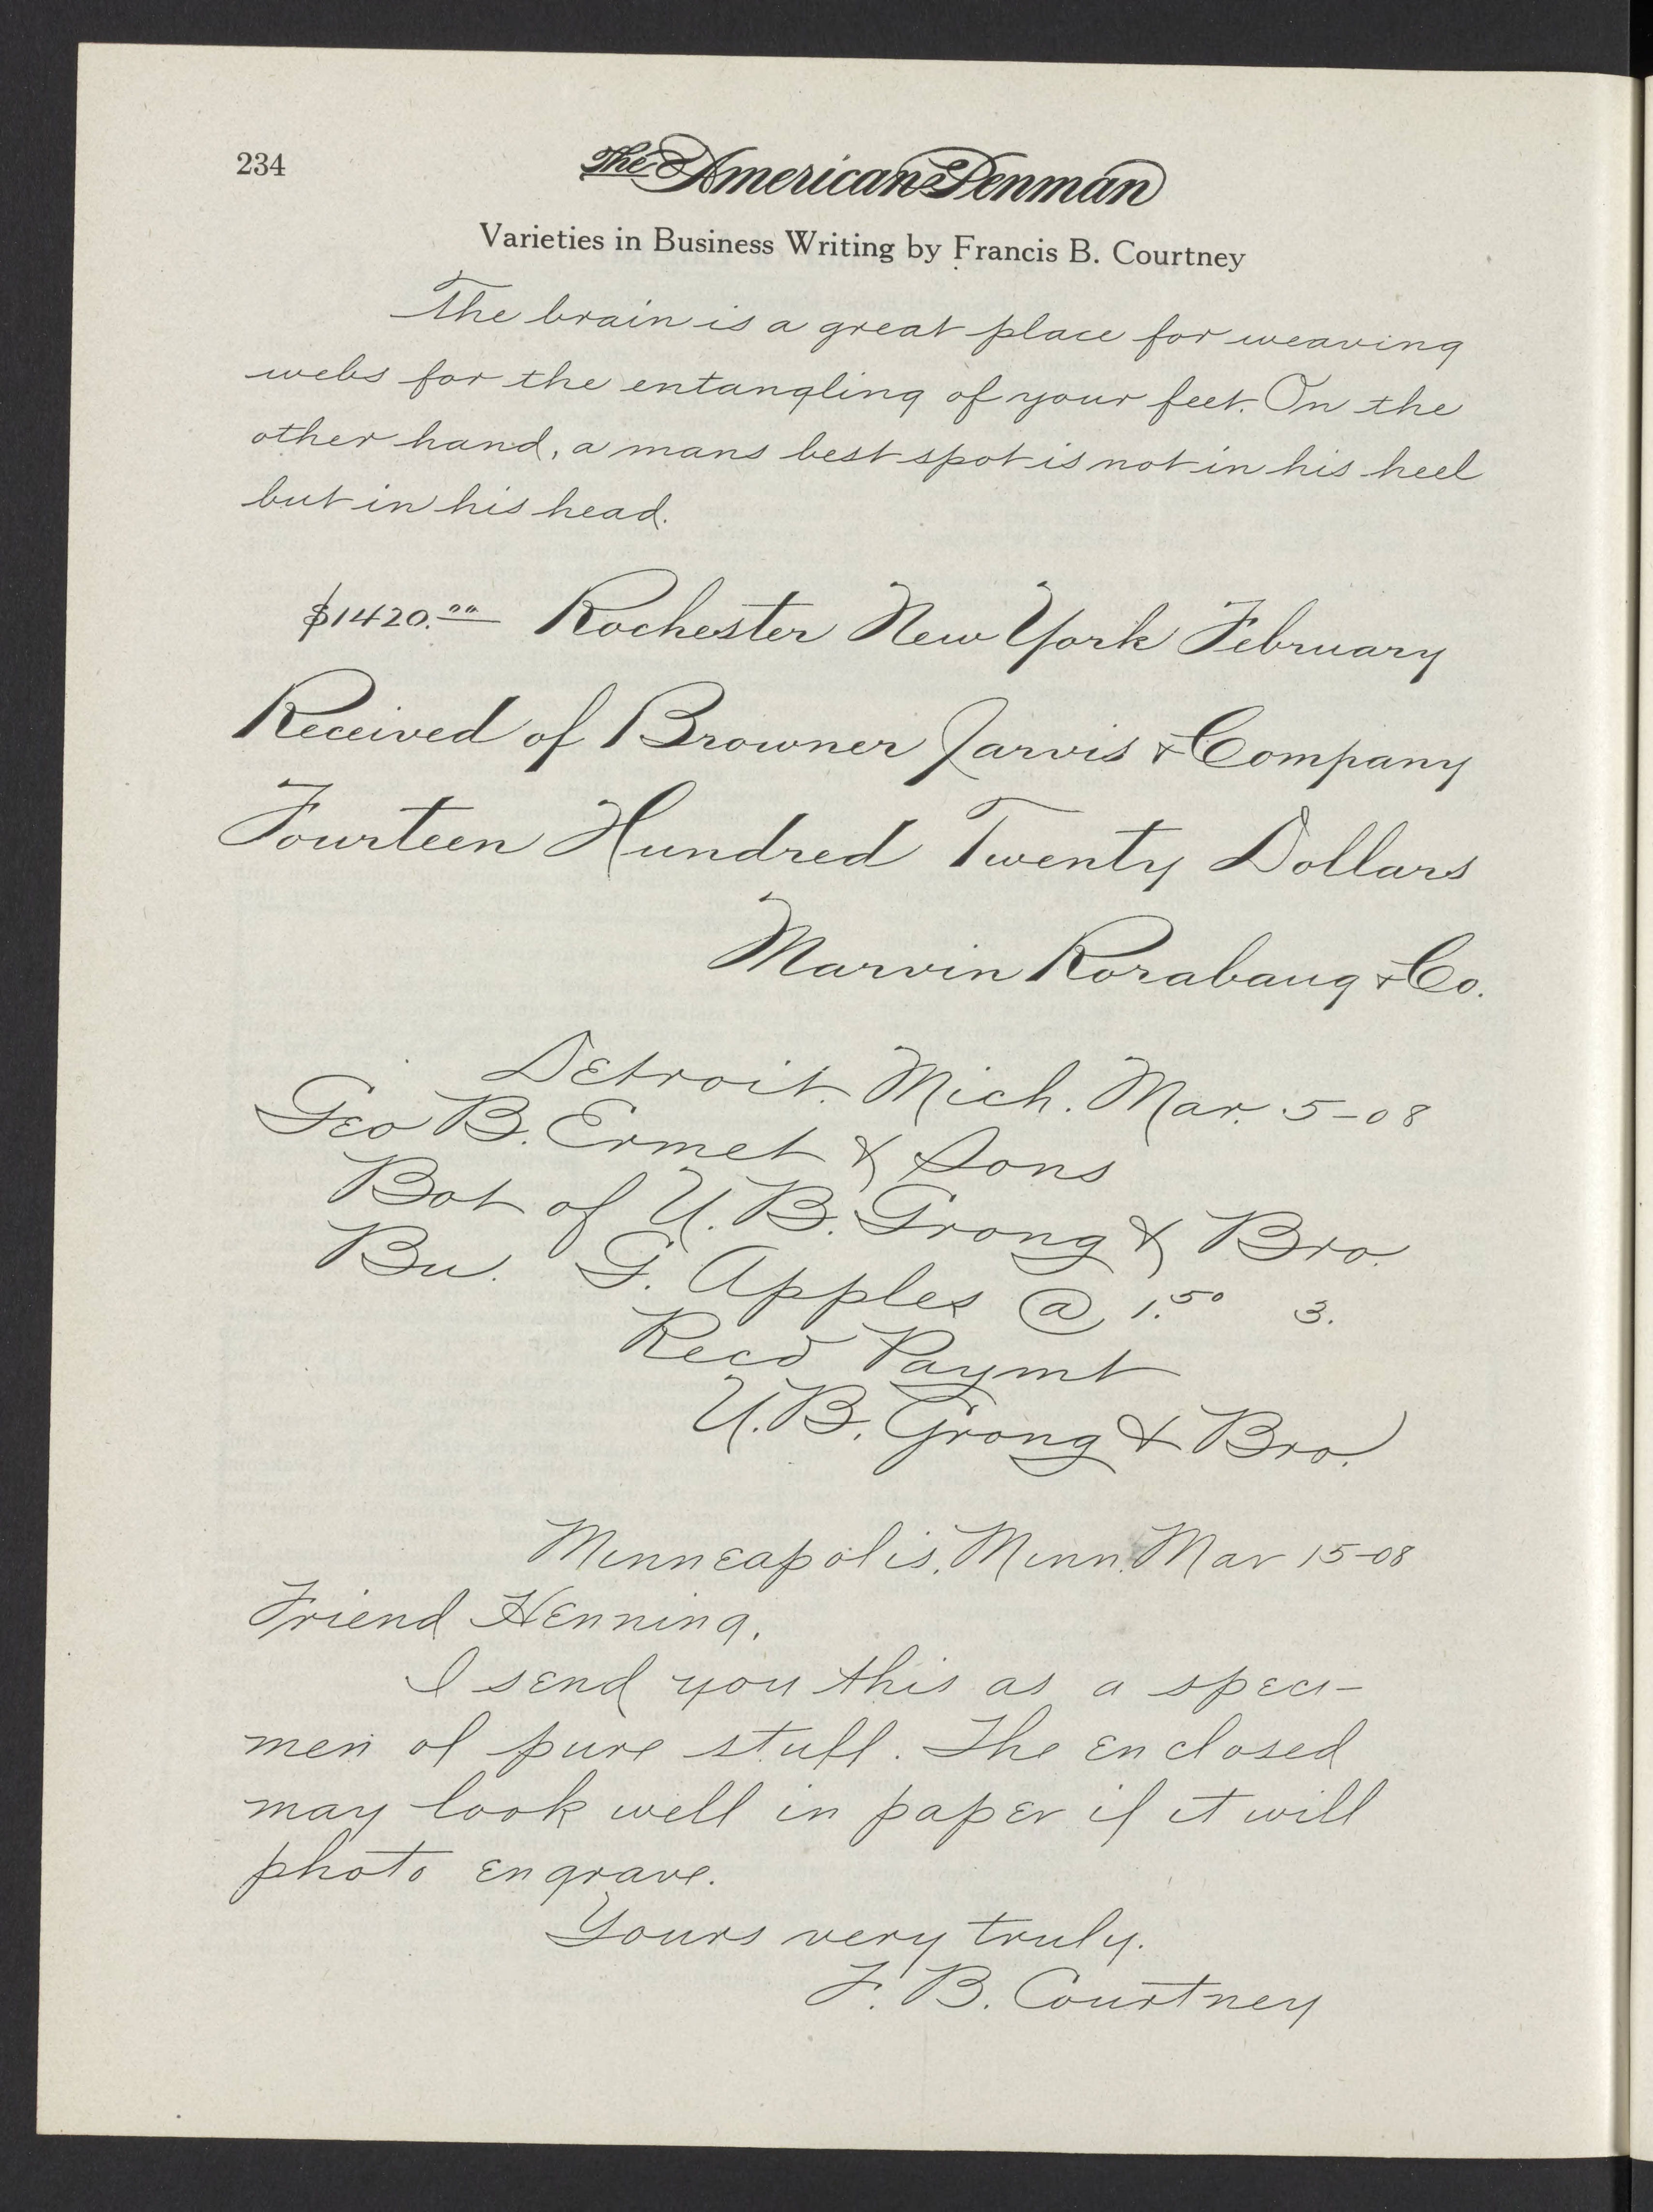 234
The American Penman
Varieties in Business Writing by Francis B. Courtney
The brain is a great place for weaving
webs for the entangling of your feet. On the
other hand, a mans best spot is not in his heel
but in his head.
$1420.00 Rochester New York February
Received of Browner Jarvis & Company
Fourteen Hundred Twenty Dollars
Marvin Rorabaug & Co.
Detroit. Mich. Mar. 5-08
Geo B. Ermet & Sons
Bot of U. B. Grong & Bro.
Bu. G. Apples @ 1.50 3.
Recd Paymt
U. B. Grong & Bro.
Minneapolis, Minn. Mar 15-08
Friend Henning,
I send you this as a speci-
men of pure stuff. The enclosed
may look well in paper if it will
photo engrave.
Yours very truly.
F. B. Courtney